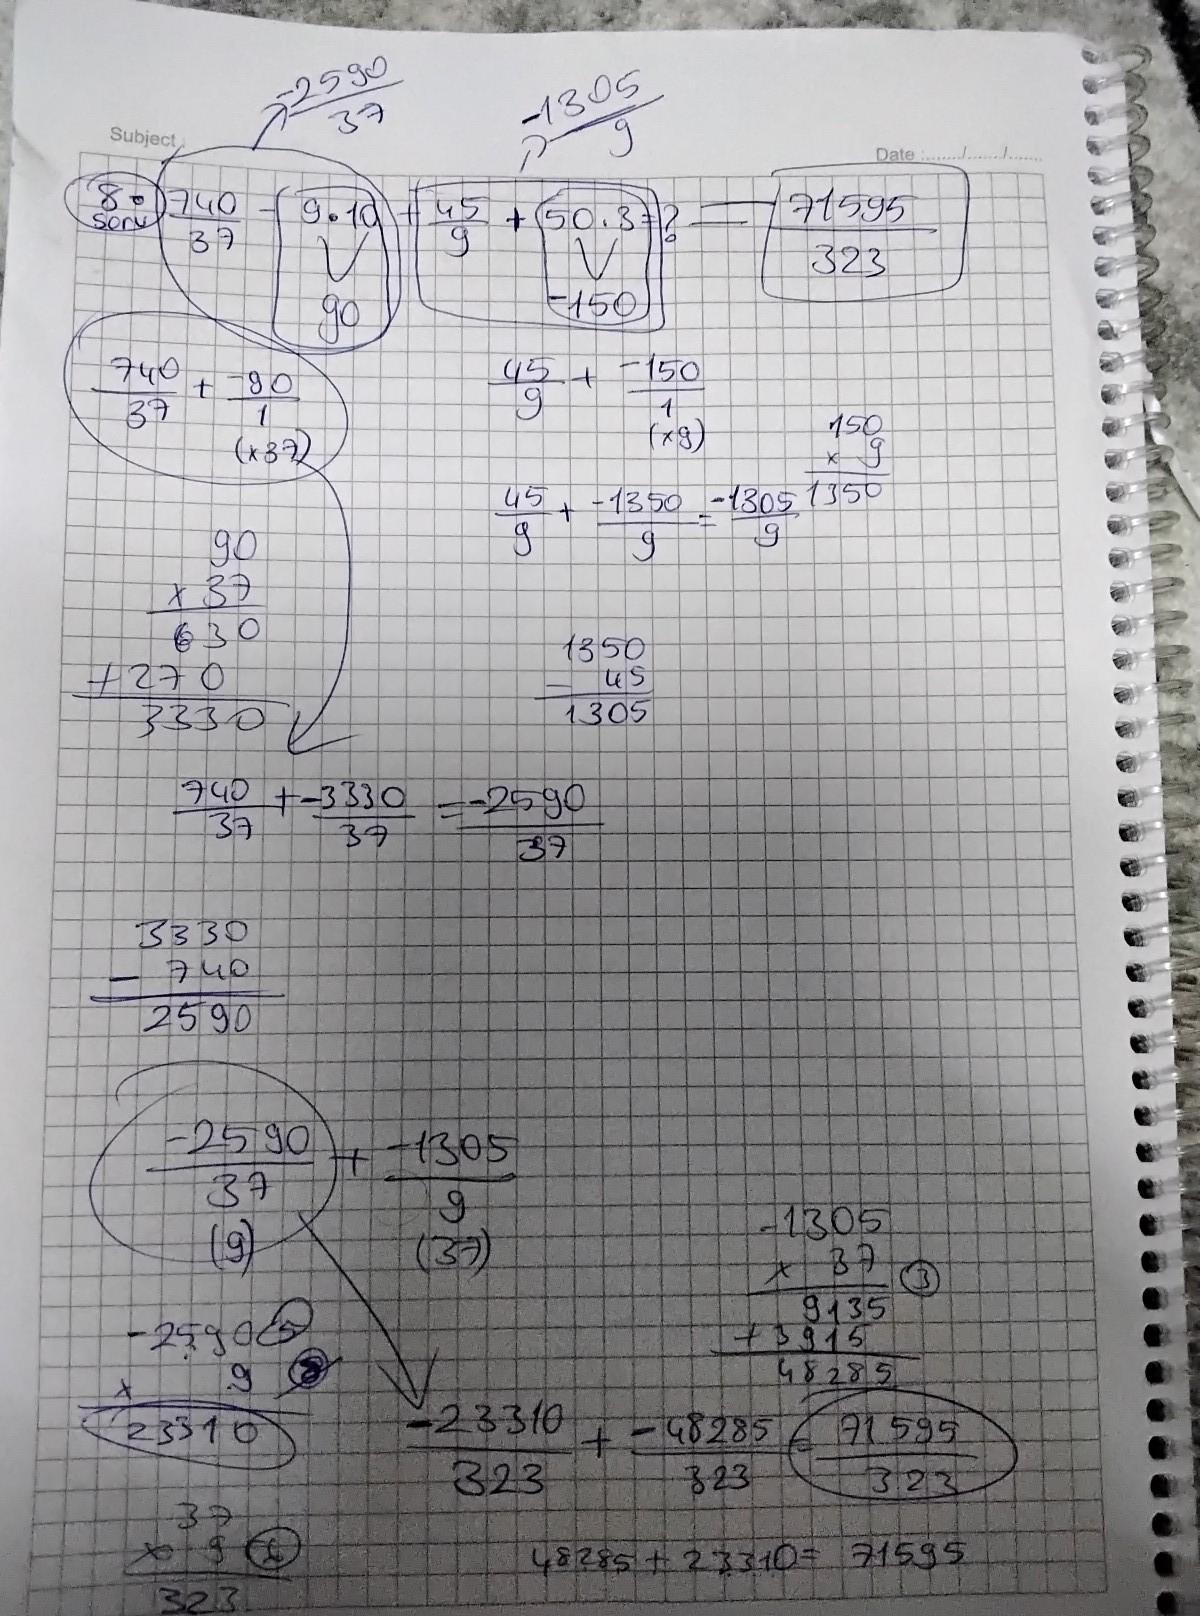 -2590/37
-1305/9
Subject :
Date :....../....../......
8. soru 740/37 - 9.10 + 45/9 + 50.3 = ? = 71595/323
90
-150
740/37 + -90/1
(x37)
45/9 + -150/1
(x9)
150
x 9
1350
45/9 + -1350/9 = -1305/9
90
x 37
630
+270
3330
1350
- 45
1305
740/37 + -3330/37 = -2590/37
3330
- 740
2590
-2590/37 + -1305/9
(9) (37)
-1305
x 37 (3)
9135
+3915
48285
-2590
x 9
23310
-23310/323 + -48285/323 = 71595/323
37
x 9
323
48285 + 23310 = 71595